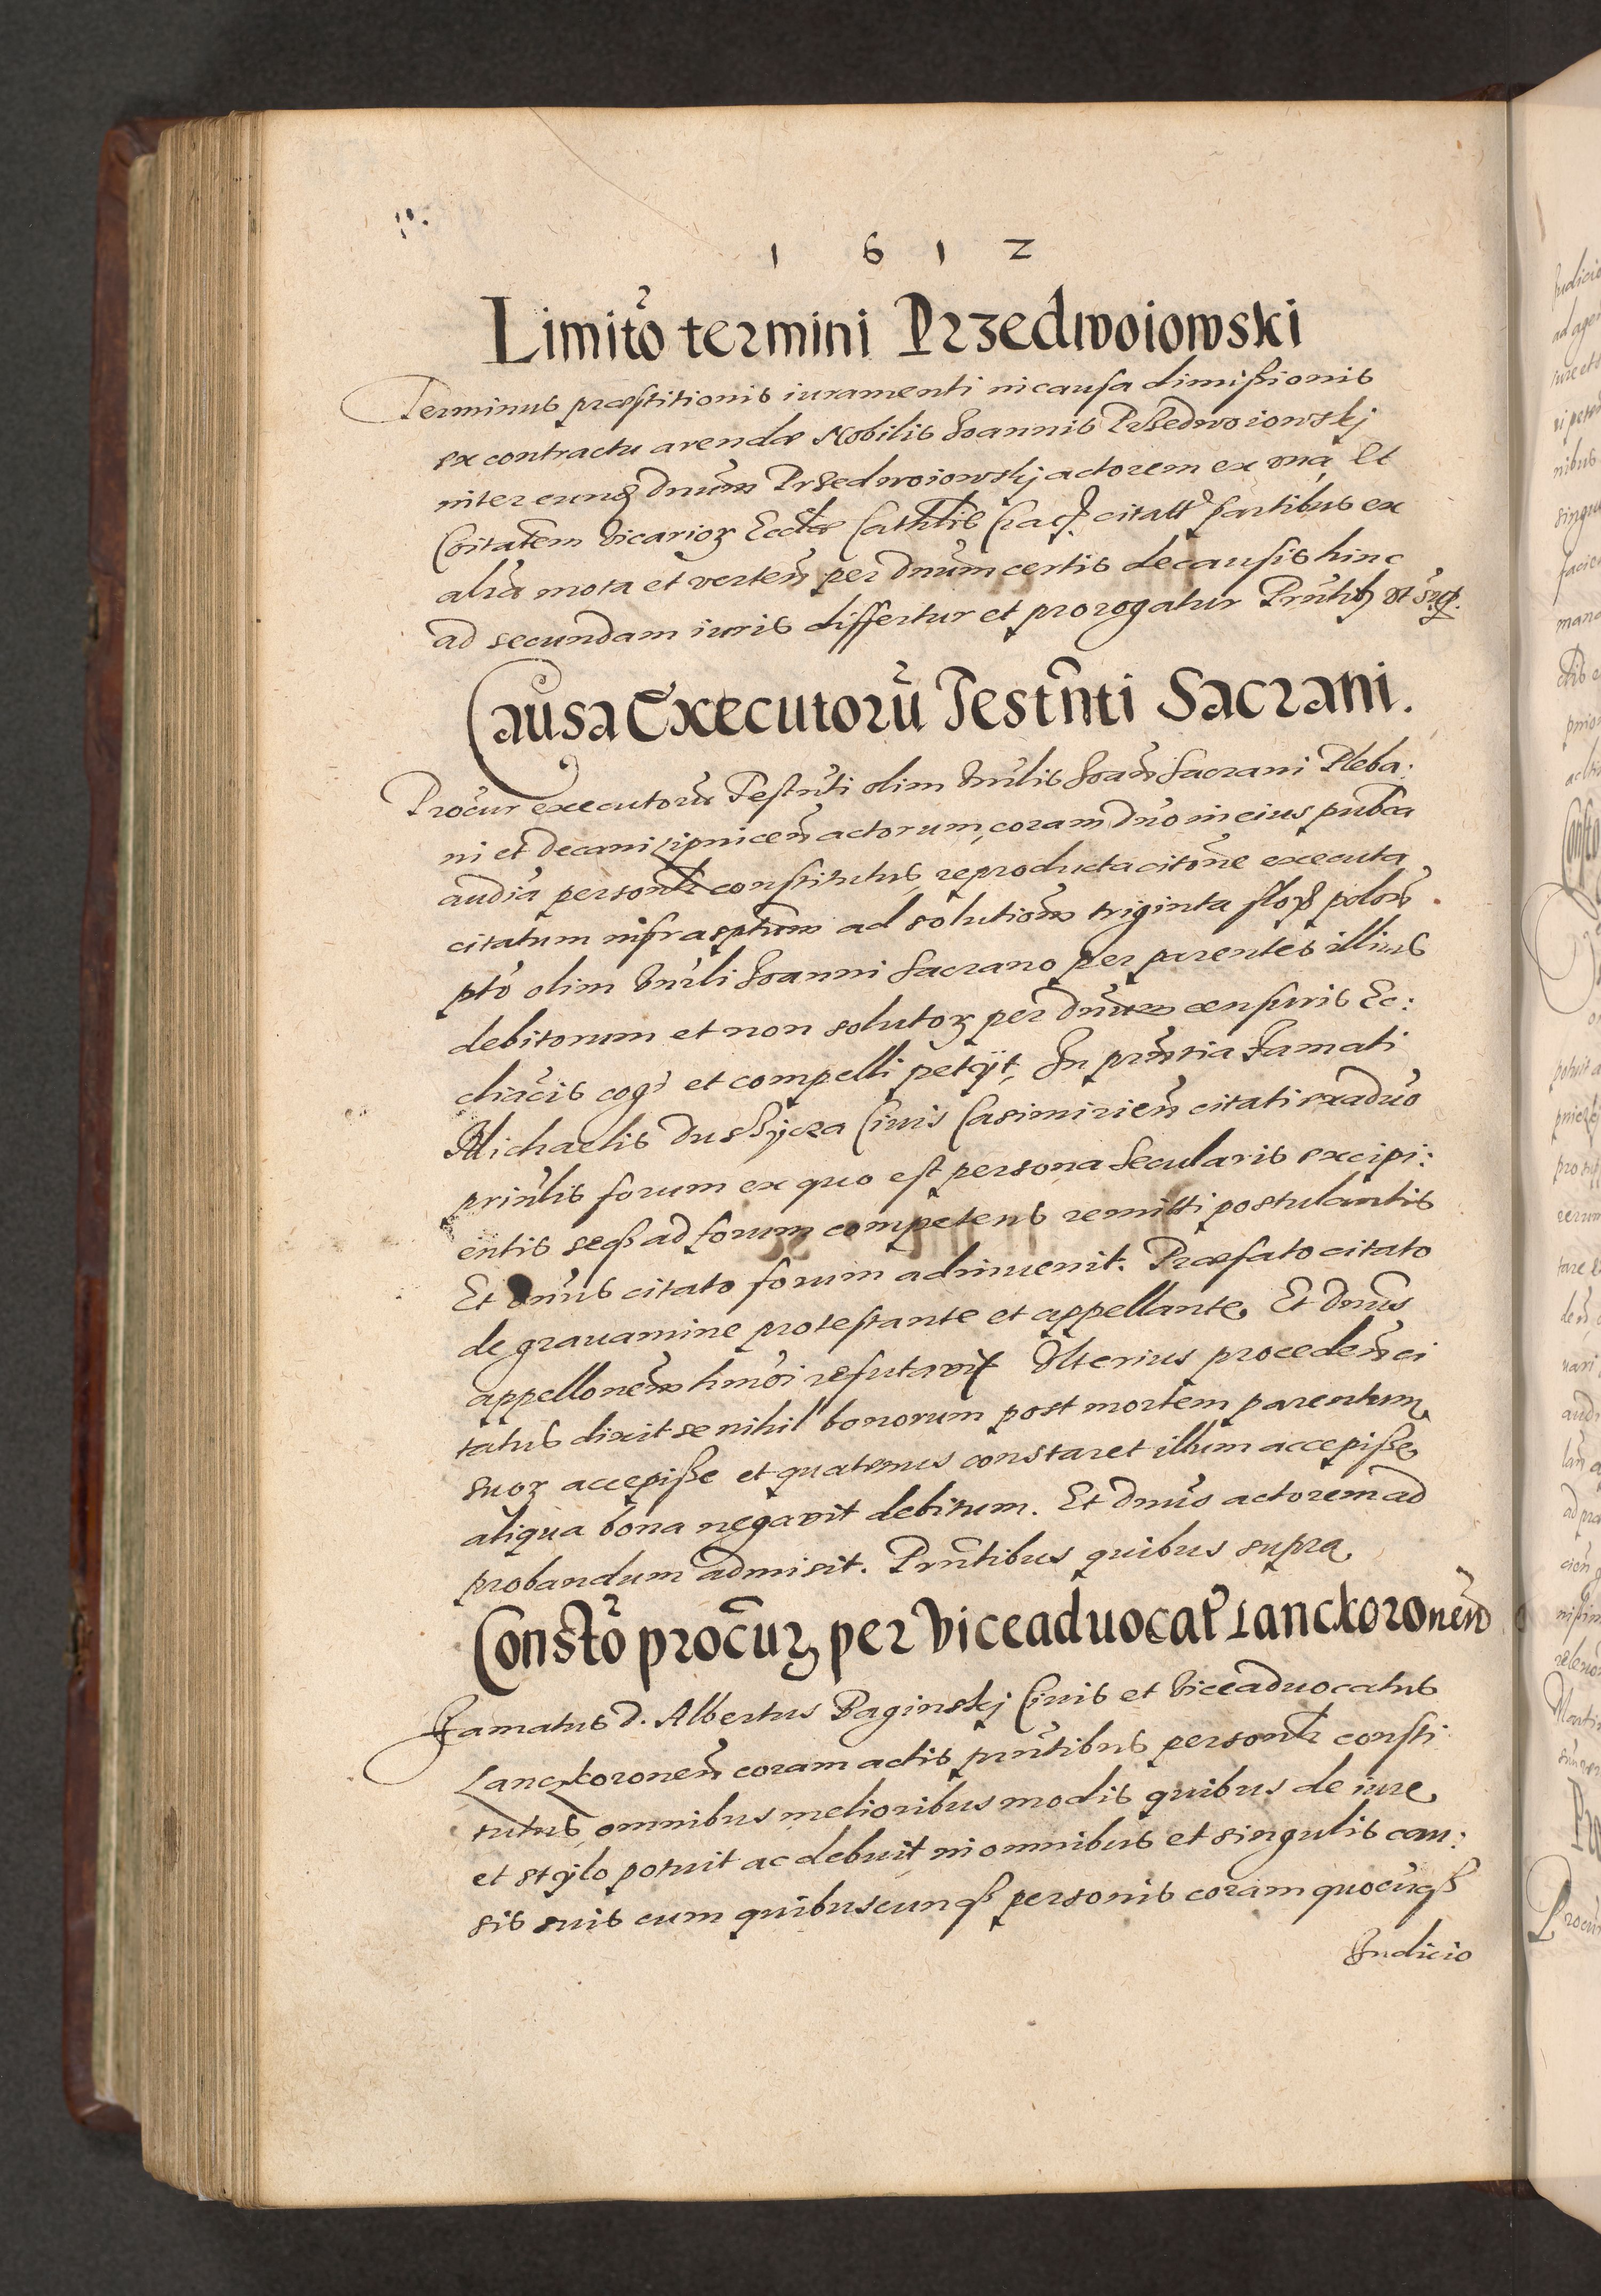 1 6 1 2
Limitõ termini Przedwoiowski
Terminus præstitionis iuramenti in causa dimißionis
ex contractu arendæ Nobilis Joannis Przedwoiowskj
inter eunq dnum Przedwoiowskj actorem ex vna Et
Coitatem Vicarioꝝ Eccliæ Cathlis Crac. citatt partibus ex
alia mota et verteñ per Dnum certis de causis hinc
ad secundam iuris differtur et prorogatur Pñtibꝫ vt supª.
Causa Executorũ Testm̃ti Sacrani.
Procur executorũ Testm̃ti olim Vnlis Joañ Sacrani Pleba:
ni et Decani Lipniceñ actorum, coram Dno in eius publica
audia personlr constitutus reproducta citõne executa
citatum infrascptum ad solutionem triginta floꝝ poloñ
pto olim Vnli Joanni Sacrano per parentes illius
debitorum et non solutoꝝ per Dnum censuris Ec:
cliacis cogi et compelli petijt, In pñntia Famati
Michaelis Duschycza Ciuis Casimirieñ citati ex aduo
prinlis forum ex quo est persona Secularis excipi:
entis seqꝫ ad forum competens remitti postulantis
Et Dnus citato forum adinuenit. Præfato citato
de grauamine protestante et appellante. Et Dnus
appellonem hmõi refutavit Vlterius procedeñ ci
tatus dixit se nihil bonorum post mortem parentum
suoꝝ accepiße et quatenus constaret illum accepiße
aliqua bona negavit debitum. Et Dnus actorem ad
probandum admisit. Prñtibus quibus supra
Constõ procuꝝ per Viceaduocat Lanckoroneñ
Famatus d. Albertus Paginskj Ciuis et Viceaduocatus
Lanczkoroneñ coram actis prñtibus personlr consti
tutus omnibus melioribus modis quibus de iure
et stylo potuit ac debuit in omnibus et singulis cau:
sis suis cum quibuscunqꝫ personis coram quocũqꝫ
Judicio